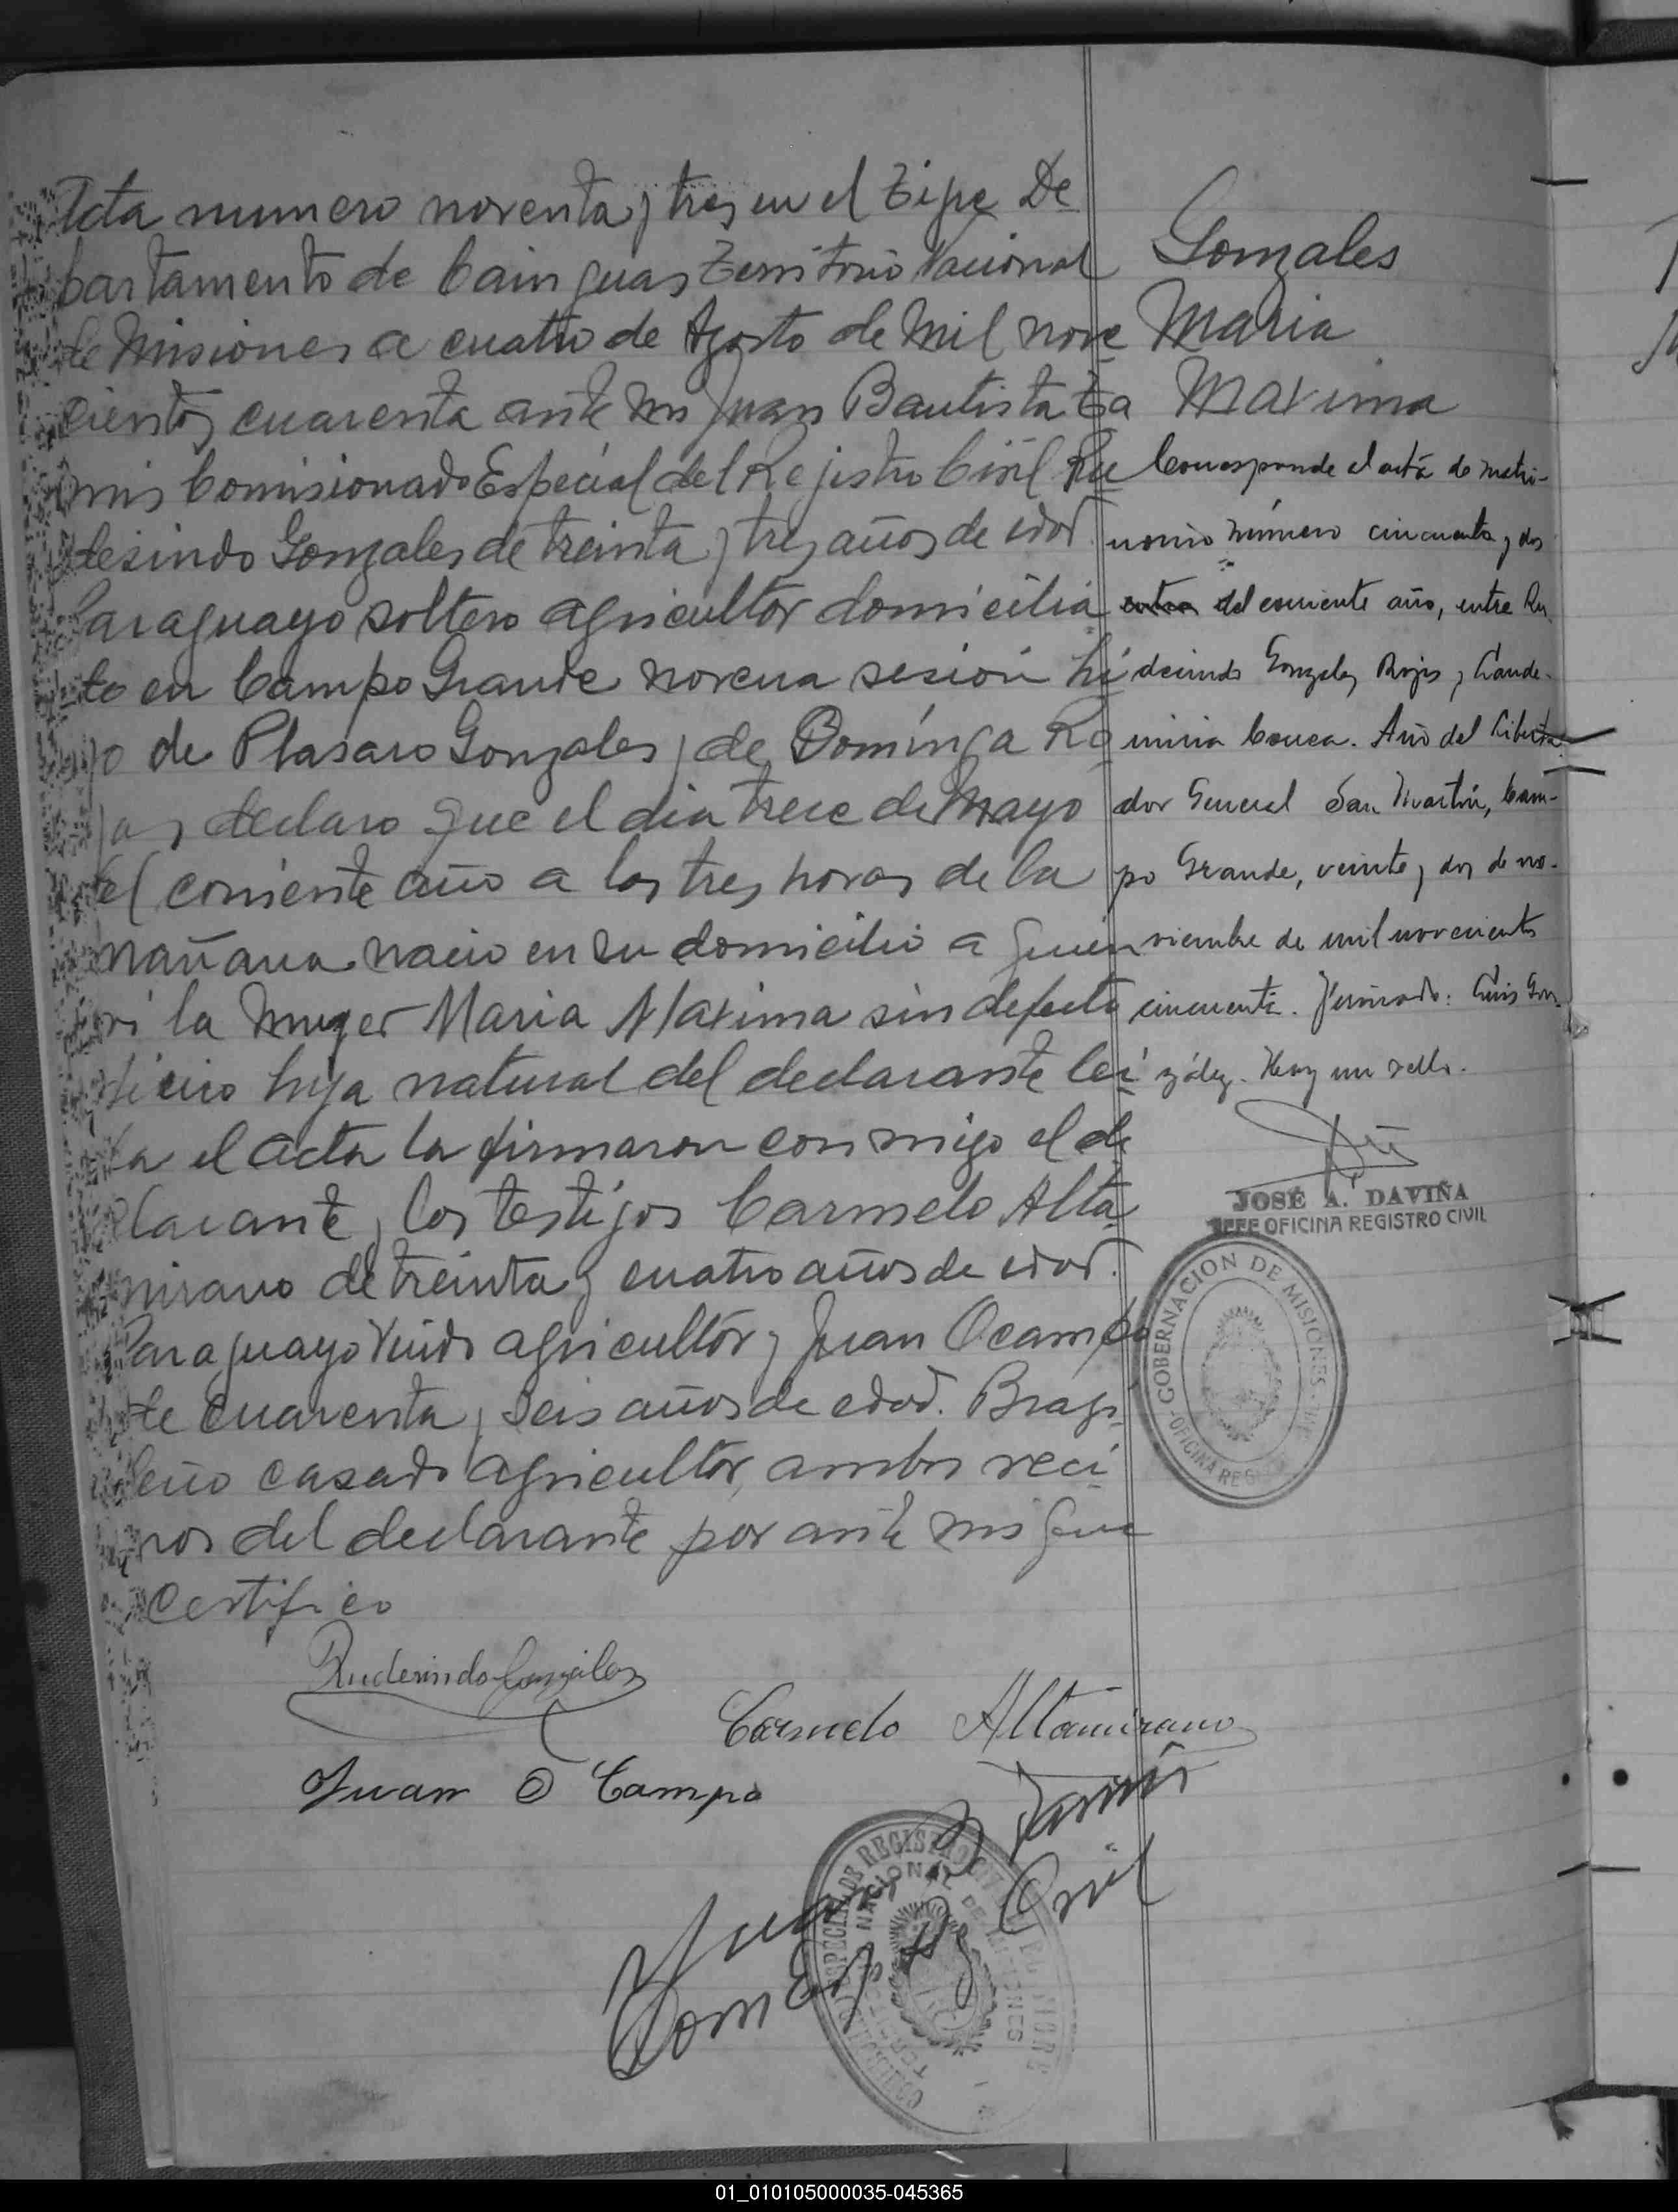 Acta numero noventa y tres en el Zipe De
partamento de Cainguas Territorio Nacional
de Misiones a cuatro de Agosto de Mil nove
cientos cuarenta ante mi Juan Bautista Ta
mis Comisionado Especial del Rejistro Civil Ru
desindo Gonzales de treinta y tres años de edad.
Paraguayo soltero agricultor domicilia
do en Campo Grande novena sesion hi
jo de Plasaro Gonzales y de Dominga Ro
jas declaro que el dia trece de Mayo
del corriente año a las tres horas de la
mañana nacio en su domicilio a quien
vi la muger Maria Maxima sin defecto
fisico hija natural del declarante lei
da el acta la firmaron con migo el de
clarante y los testigos Carmelo Alta
mirano de treinta y cuatro años de edad.
Paraguayo viudo agricultor y Juan Ocampo
de cuarenta y seis años de edad. Brasi
leño casado agricultor, ambos veci
nos del declarante por ante mi que
certifico
Rudesindo Gonzales
Carmelo Altamirano
Juan O Campo
Juan B Tamis
Com Esp Rg Civil
Gonzales
Maria
Maxima
Corresponde el acta de matri-
monio número cincuenta y dos
del corriente año, entre Ru
decindo Gonzalez Rojas y Cande-
Año del Liberta
dor General San Martín, Cam-
po Grande, veinte y dos de no-
viembre de mil novecientos
cincuenta. Firmado: Luis Gon-
zález. Hay un sello.
JOSÉ A. DAVIÑA
JEFE OFICINA REGISTRO CIVIL
GOBERNACION DE MISIONES
OFICINA REG
REGISTRO
NACIONAL DE MISIONES
01_010105000035-045365